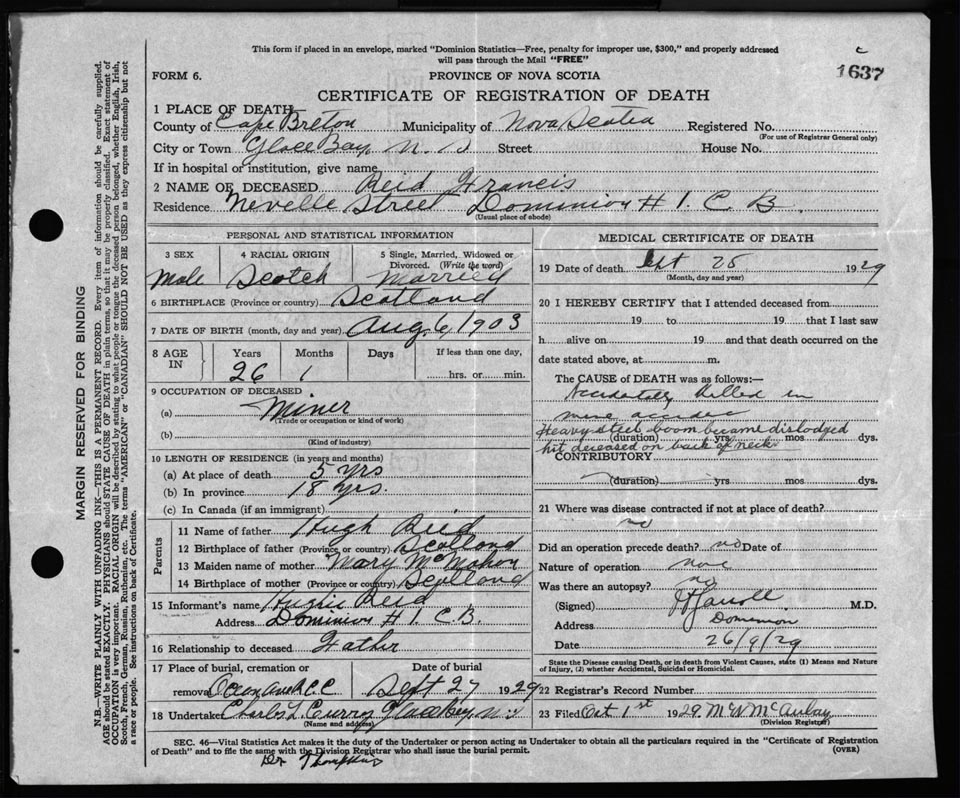 This form if placed in an envelope, marked "Dominion Statistics—Free, penalty for improper use, $300," and properly addressed
will pass through the Mail "FREE"
c
1637
FORM 6.
PROVINCE OF NOVA SCOTIA
CERTIFICATE OF REGISTRATION OF DEATH
1 PLACE OF DEATH
County of Cape Breton Municipality of Nova Scotia Registered No.
(For use of Registrar General only)
City or Town Glace Bay N. S Street House No.
If in hospital or institution, give name
2 NAME OF DECEASED Reid Francis
Residence Nevelle Street Dominion # 1. C. B.
(Usual place of abode)
PERSONAL AND STATISTICAL INFORMATION
3 SEX 4 RACIAL ORIGIN 5 Single, Married, Widowed or
Divorced. (Write the word)
Male Scotch Married
6 BIRTHPLACE (Province or country) Scotland
7 DATE OF BIRTH (month, day and year) Aug, 6, 1903
8 AGE IN Years Months Days If less than one day,
26 1 hrs. or min.
9 OCCUPATION OF DECEASED
(a) Miner
(Trade or occupation or kind of work)
(b)
(Kind of industry)
10 LENGTH OF RESIDENCE (in years and months)
(a) At place of death 5 yrs
(b) In province 18 yrs.
(c) In Canada (if an immigrant)
Parents
11 Name of father Hugh Reid
12 Birthplace of father (Province or country) Scotland
13 Maiden name of mother Mary McMahon
14 Birthplace of mother (Province or country) Scotland
15 Informant's name Hughie Reid
Address Dominion # 1. C.B.
16 Relationship to deceased Father
17 Place of burial, cremation or Date of burial
removal Sept 27 1929
18 Undertaker Charles L. Curry Glace Bay, N.S
(Name and address)
MEDICAL CERTIFICATE OF DEATH
19 Date of death Sept 25 1929
(Month, day and year)
20 I HEREBY CERTIFY that I attended deceased from
19 to 19 that I last saw
h alive on 19 and that death occurred on the
date stated above, at m.
The CAUSE OF DEATH was as follows:—
Accidentally Killed in
mine
Heavy steel boom became dislodged
(duration) yrs mos dys.
hit deceased on back of neck
CONTRIBUTORY
(duration) yrs mos dys.
21 Where was disease contracted if not at place of death?
no
Did an operation precede death? no Date of
Nature of operation
Was there an autopsy? no
(Signed) M.D.
Address Dominion
Date 26/9/29
State the Disease causing Death, or in death from Violent Causes, state (1) Means and Nature
of Injury, (2) whether Accidental, Suicidal or Homicidal.
22 Registrar's Record Number
23 Filed Oct 1st 1929 McAulay
(Division Registrar)
SEC. 46—Vital Statistics Act makes it the duty of the Undertaker or person acting as Undertaker to obtain all the particulars required in the "Certificate of Registration
of Death" and to file the same with the Division Registrar who shall issue the burial permit. (OVER)
Dr Thompkins
MARGIN RESERVED FOR BINDING
N.B.—WRITE PLAINLY WITH UNFADING INK—THIS IS A PERMANENT RECORD. Every item of information should be carefully supplied.
AGE should be stated EXACTLY. PHYSICIANS should STATE CAUSE OF DEATH in plain terms, so that it may be properly classified. Exact statement of
OCCUPATION is very important. RACIAL ORIGIN will be described by stating to what people or tongue the deceased person belonged, whether English, Irish,
Scotch, French, German, Russian, Ruthenian, etc. The terms "AMERICAN" or "CANADIAN" SHOULD NOT BE USED as they express citizenship but not
a race or people. See instructions on back of Certificate.